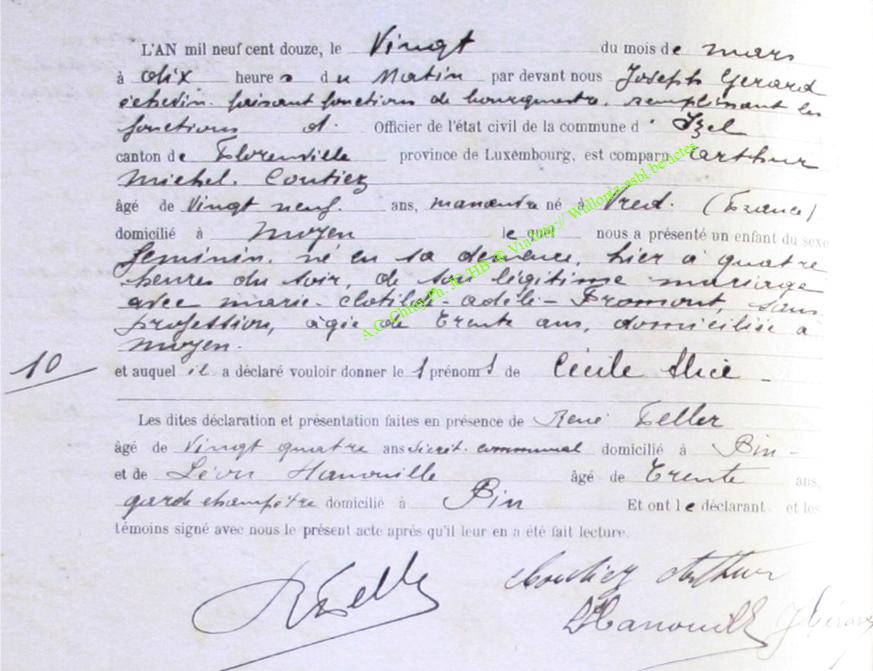 L'AN mil neuf cent douze, le Vingt du mois de mars
à dix heures du Matin par devant nous Joseph Gerard
échevin faisant fonctions de bourgmestre, remplissant les
fonctions d' Officier de l'état civil de la commune d' Izel
canton de Florenville province de Luxembourg, est comparu Arthur
Michel Coutiez
âgé de Vingt neuf ans, manœuvre né à Vred. (France)
domicilié à Moyen lequel nous a présenté un enfant du sexe
féminin né en sa demeure, hier à quatre
heures du soir, de son légitime mariage
avec Marie-Clotilde-Adèle-Fromont, sans
profession, âgée de trente ans, domiciliée à
Moyen.
10 et auquel il a déclaré vouloir donner les prénoms de Cécile Alice
Les dites déclaration et présentation faites en présence de René Feller
âgé de vingt quatre ans secrét. communal domicilié à Pin
et de Léon Hanouille âgé de Trente ans,
garde champêtre domicilié à Pin Et ont le déclarant et les
témoins signé avec nous le présent acte après qu'il leur en a été fait lecture.
RFeller Coutiez Arthur
LHanouille JGérard